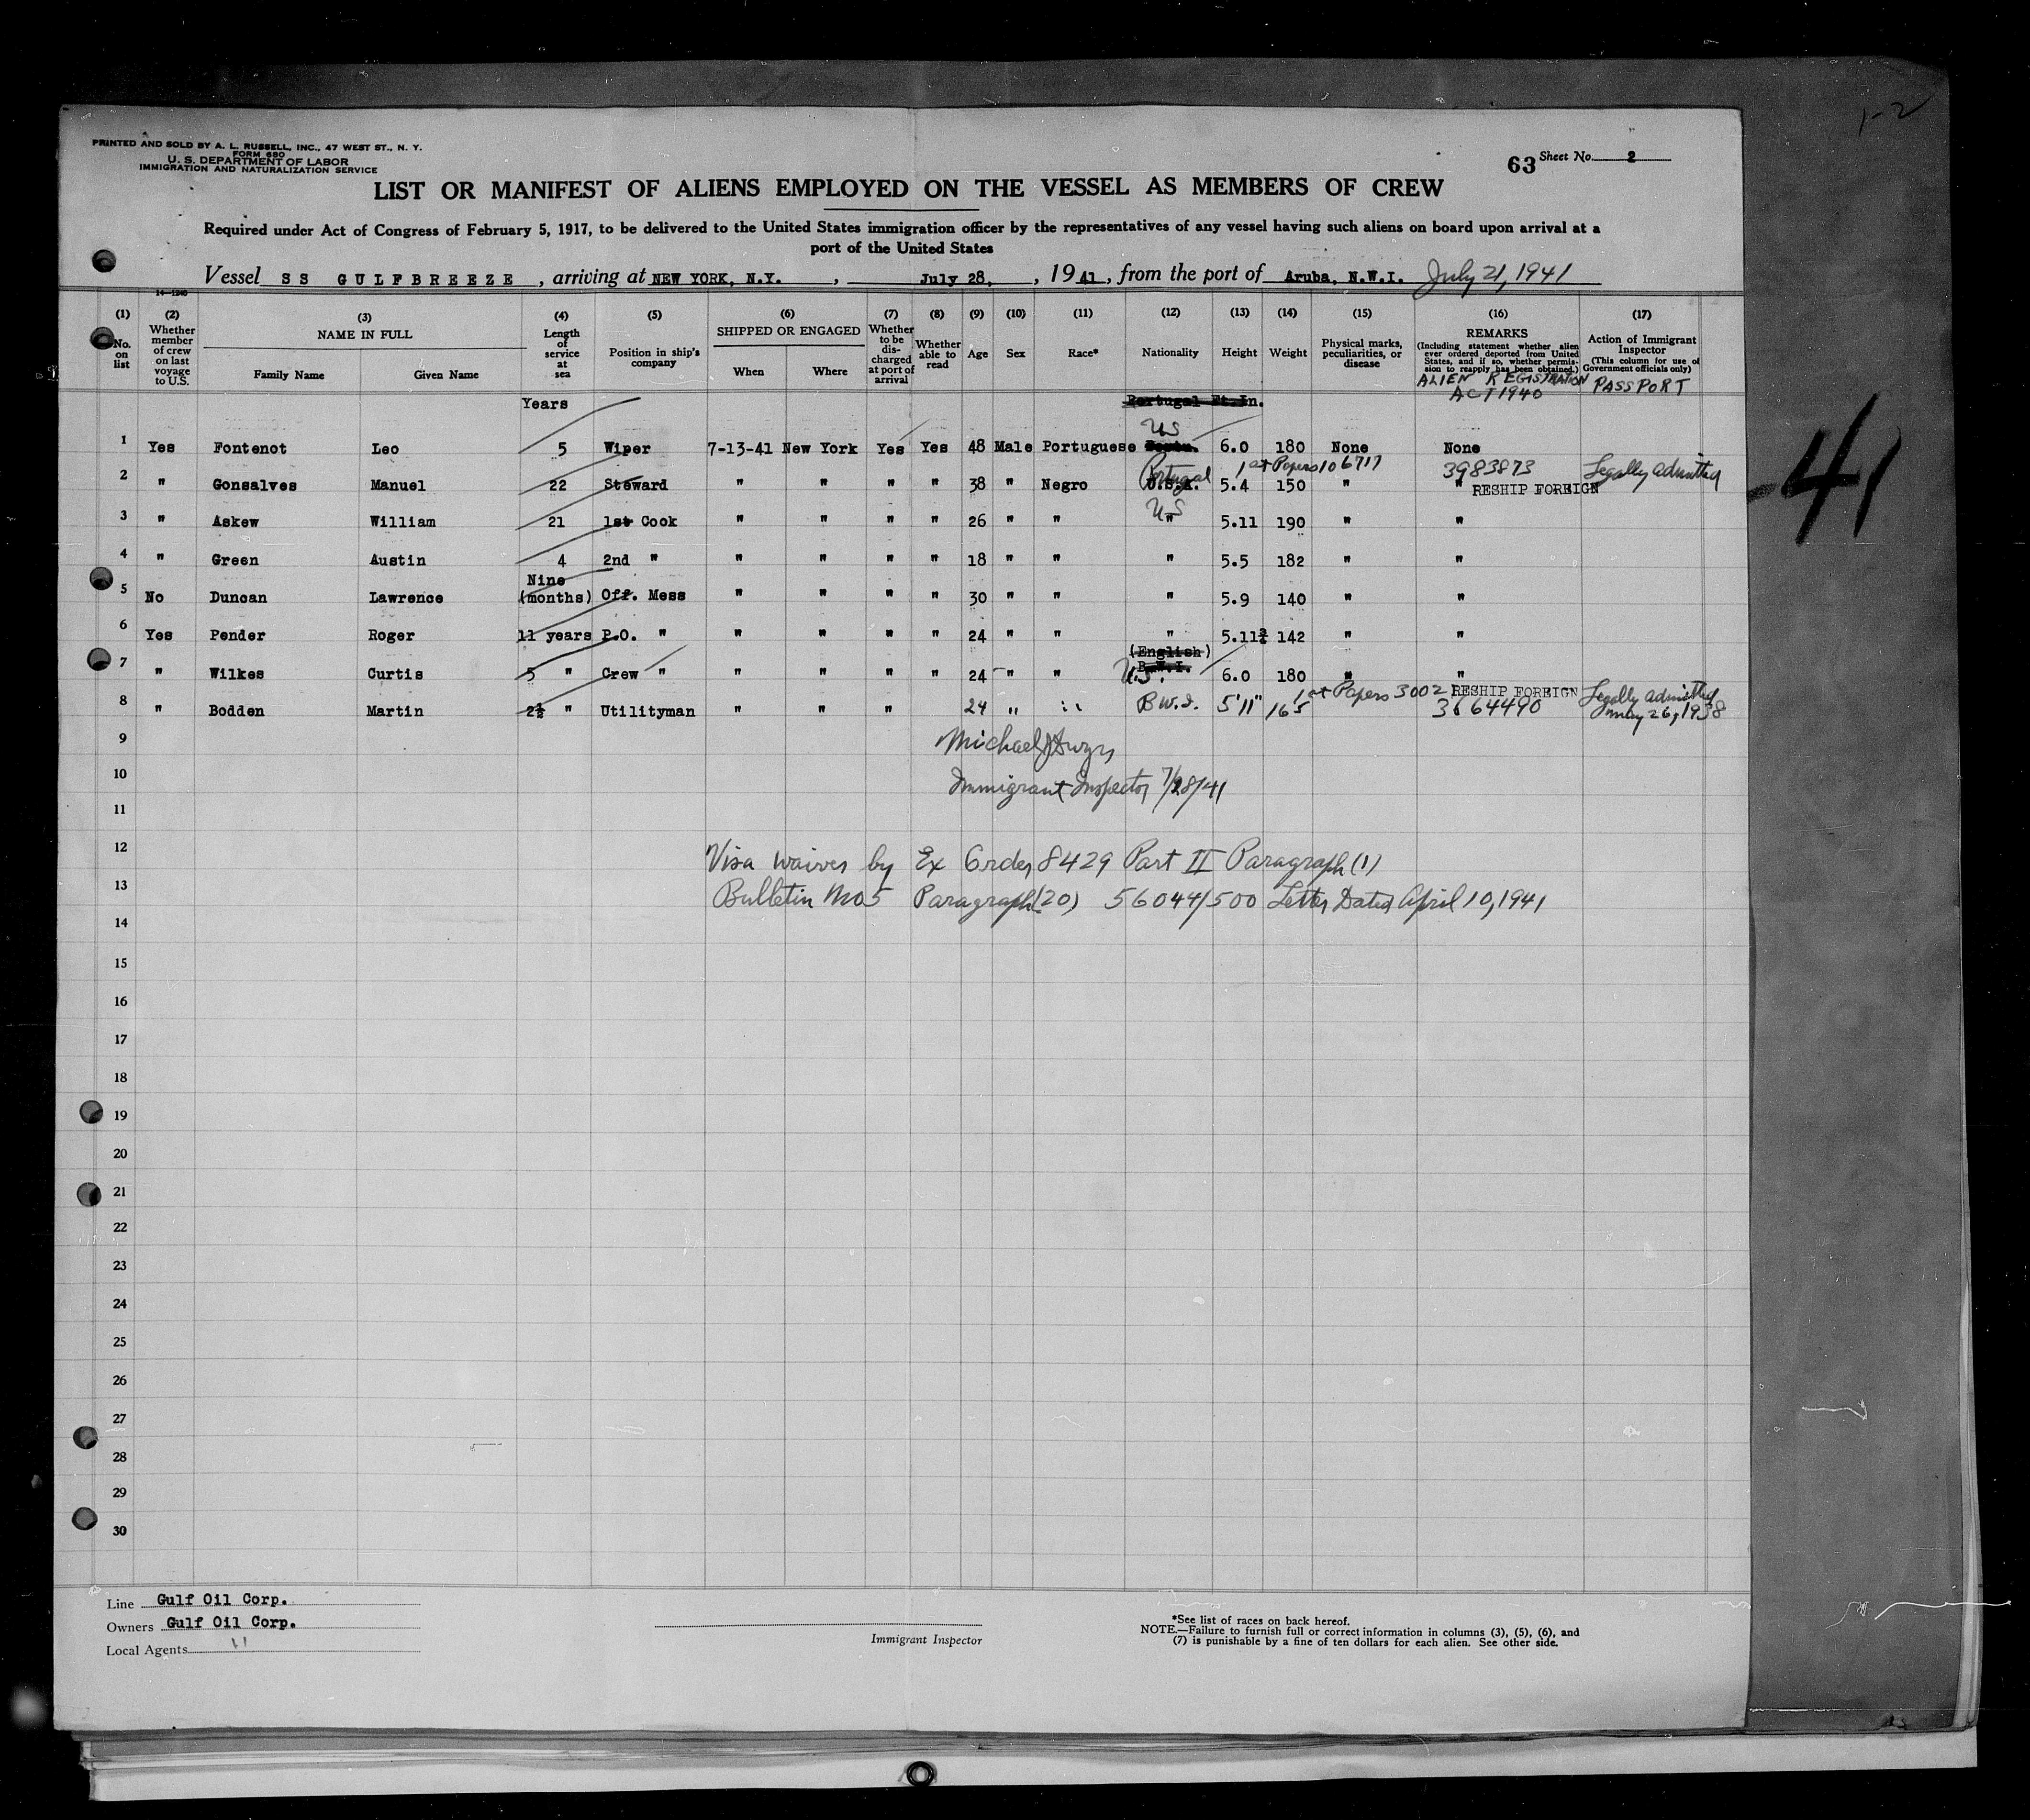 1-2
PRINTED AND SOLD BY A. L. RUSSELL, INC., 47 WEST ST., N. Y.
FORM 680
U. S. DEPARTMENT OF LABOR
IMMIGRATION AND NATURALIZATION SERVICE
63 Sheet No. 2
LIST OR MANIFEST OF ALIENS EMPLOYED ON THE VESSEL AS MEMBERS OF CREW
Required under Act of Congress of February 5, 1917, to be delivered to the United States immigration officer by the representatives of any vessel having such aliens on board upon arrival at a
port of the United States
Vessel SS GULFBREEZE, arriving at NEW YORK, N.Y., July 28, 1941, from the port of Aruba, N.W.I. July 21, 1941
14-1240
(1) No. on list
(2) Whether member of crew on last voyage to U.S.
(3) NAME IN FULL Family Name Given Name
(4) Length of service at sea
(5) Position in ship's company
(6) SHIPPED OR ENGAGED When Where
(7) Whether to be discharged at port of arrival
(8) Whether able to read
(9) Age
(10) Sex
(11) Race*
(12) Nationality
(13) Height
(14) Weight
(15) Physical marks, peculiarities, or disease
(16) REMARKS (Including statement whether alien ever ordered deported from United States, and if so, whether permission to reapply has been obtained.) ALIEN REGISTRATION ACT 1940
(17) Action of Immigrant Inspector (This column for use of Government officials only) PASSPORT
Years Portugal Ft. In.
US
1 Yes Fontenot Leo 5 Wiper 7-13-41 New York Yes Yes 48 Male Portuguese 6.0 180 None None
Portugal 1st Papers 106717 3983873 Legally admitted
2 " Gonsalves Manuel 22 Steward " " " " 38 " Negro U.S.A. 5.4 150 " " RESHIP FOREIGN
US
3 " Askew William 21 1st Cook " " " " 26 " " " 5.11 190 " "
4 " Green Austin 4 2nd " " " " " 18 " " " 5.5 182 " "
Nine
5 No Duncan Lawrence (months) Off. Mess " " " " 30 " " " 5.9 140 " "
6 Yes Pender Roger 11 years P.O. " " " " " 24 " " " 5.11½ 142 " "
(English)
B.W.I.
7 " Wilkes Curtis 5 " Crew " " " " " 24 " " U.S. 6.0 180 " "
1st Papers 3002 RESHIP FOREIGN Legally admitted
8 " Bodden Martin 2½ " Utilityman " " " 24 " " B.W.I. 5'11" 165 3664490 May 26, 1938
41
9
Michael
10
Immigrant Inspector 7/28/41
11
12
Visa waiver by Ex Order 8429 Part II Paragraph (1)
13
Bulletin No 5 Paragraph (20) 56044/500 Letter Dated April 10, 1941
14
15
16
17
18
19
20
21
22
23
24
25
26
27
28
29
30
Line Gulf Oil Corp.
Owners Gulf Oil Corp.
Local Agents "
Immigrant Inspector
*See list of races on back hereof.
NOTE.—Failure to furnish full or correct information in columns (3), (5), (6), and
(7) is punishable by a fine of ten dollars for each alien. See other side.